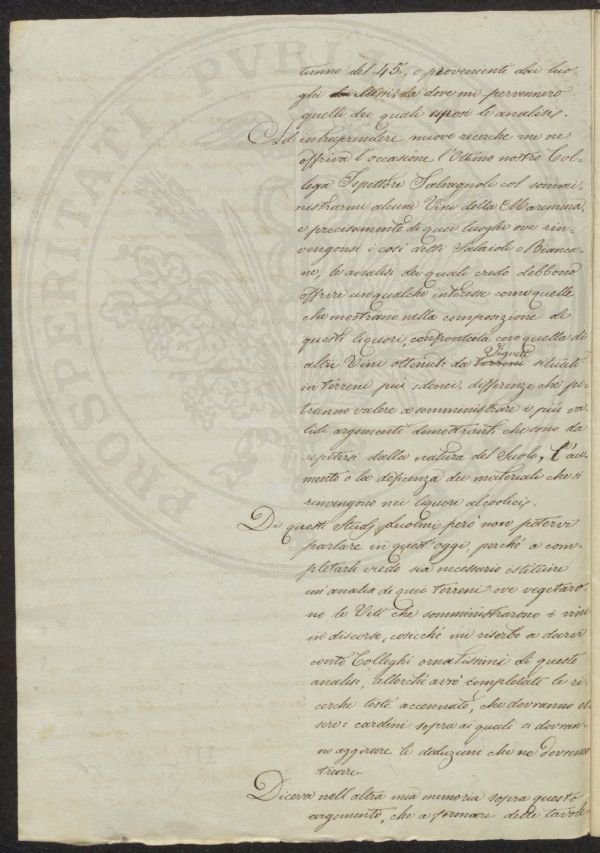 tunno del 45, o proveniente dai luo-
ghi di Messi, da dove mi pervennero
quelli dei quali esposi le analisi.
Ad intraprendere nuove ricerche me ne
offriva l'occasione l'Ottimo nostro Col-
lega Ispettore Salvagnoli col sommi-
nistrarmi alcuni Vini della Maremma,
e precisamente di quei luoghi ove rin-
vengonsi i così detti Salaioli e Bianca-
ne, le analisi dei quali credo debbono
offrire un qualche interesse come quelle
che mostrano nella composizione di
questi liquori, confrontata con quella di
altri Vini ottenuti da terreni Vigneti situati
in terreni più idonei, differenze che po-
tranno valere a somministrare i più va-
lidi argomenti dimostranti che sono da
ripetersi dalla natura del Suolo, l'au-
mento o la deficenza dei materiali che si
rinvengono nei liquori alcoolici.
Di questi Studj duolmi però non potervi
parlare in quest'oggi, perché a com-
pletarli credo sia necessario istituire
un'analisi di quei terreni ove vegetaro-
no le Viti che somministrarono i vini
in discorso, cosicché mi riserbo a darvi
conto Colleghi ornatissimi di queste
analisi, allorché avrò completate le ri-
cerche testé accennate, che dovranno es-
sere i cardini sopra ai quali si dovran-
no aggirare le deduzioni che ne dovremo
trarre.
Diceva nell'altra mia memoria sopra questo
argomento, che a formare delle tavole
PROSPERITATI PVBLI